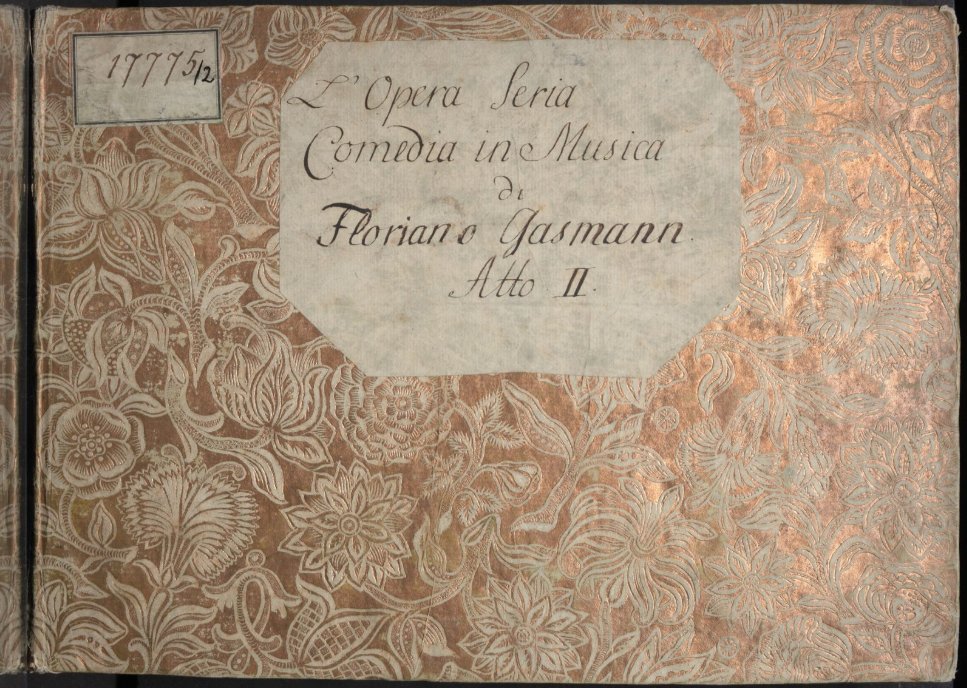 17775/2
L'Opera Seria
Comedia in Musica
di
Floriano Gasmann.
Atto II.